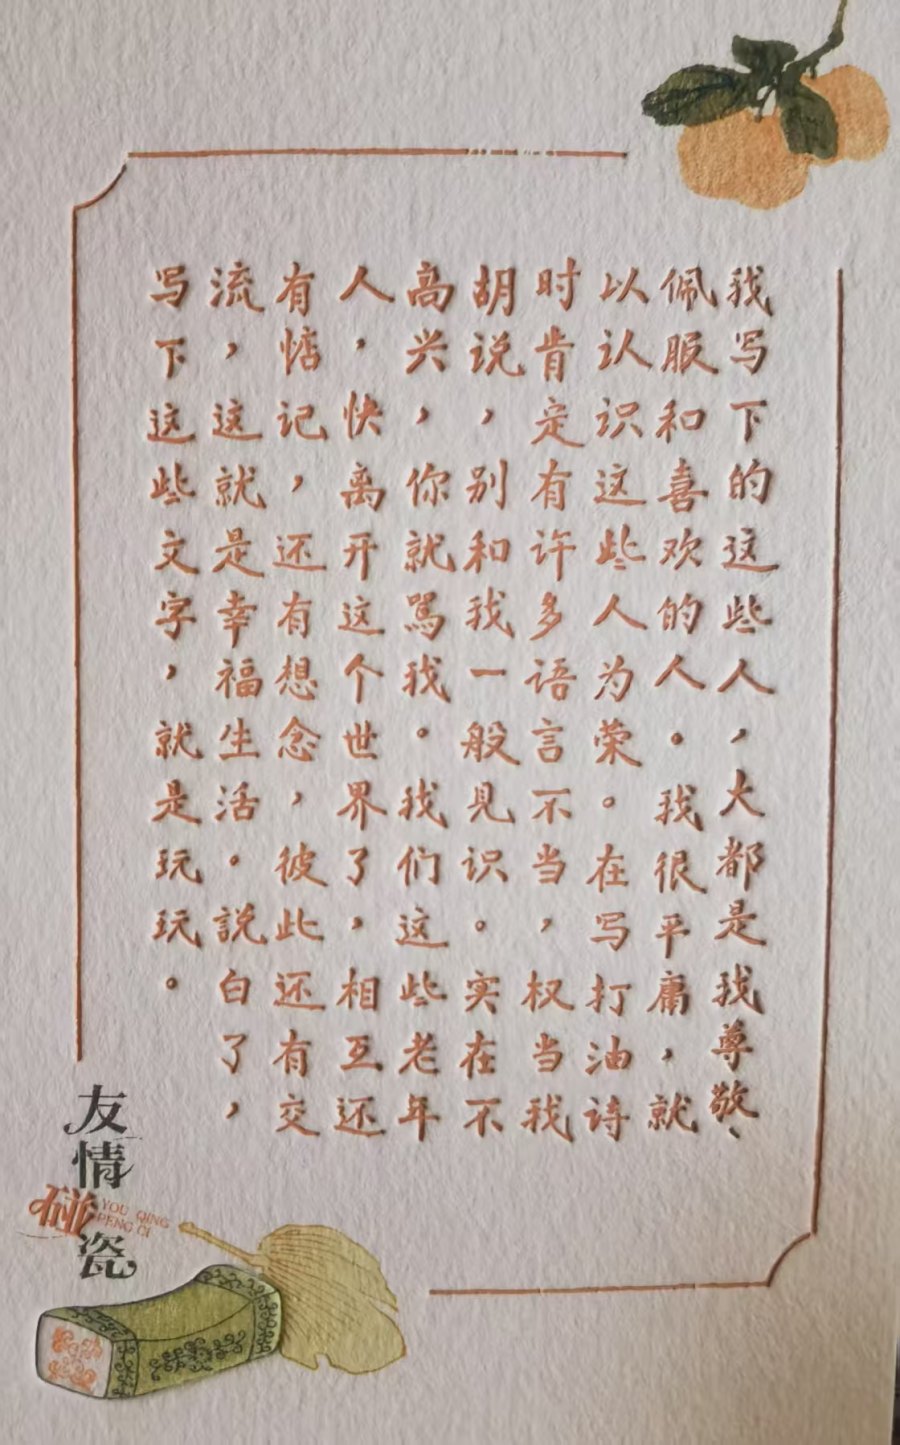 我写下的这些人，大都是我尊敬、
佩服和喜欢的人。我很平庸，就
以认识这些人为荣。在写打油诗
时肯定有许多语言不当，权当我
胡说，别和我一般见识。实在不
高兴，你就骂我。我们这些老年
人，快离开这个世界了，相互还
有惦记，还有想念，彼此还有交
流，这就是幸福生活。説白了，
写下这些文字，就是玩玩。
友情
碰
YOU QING
PENG CI
瓷